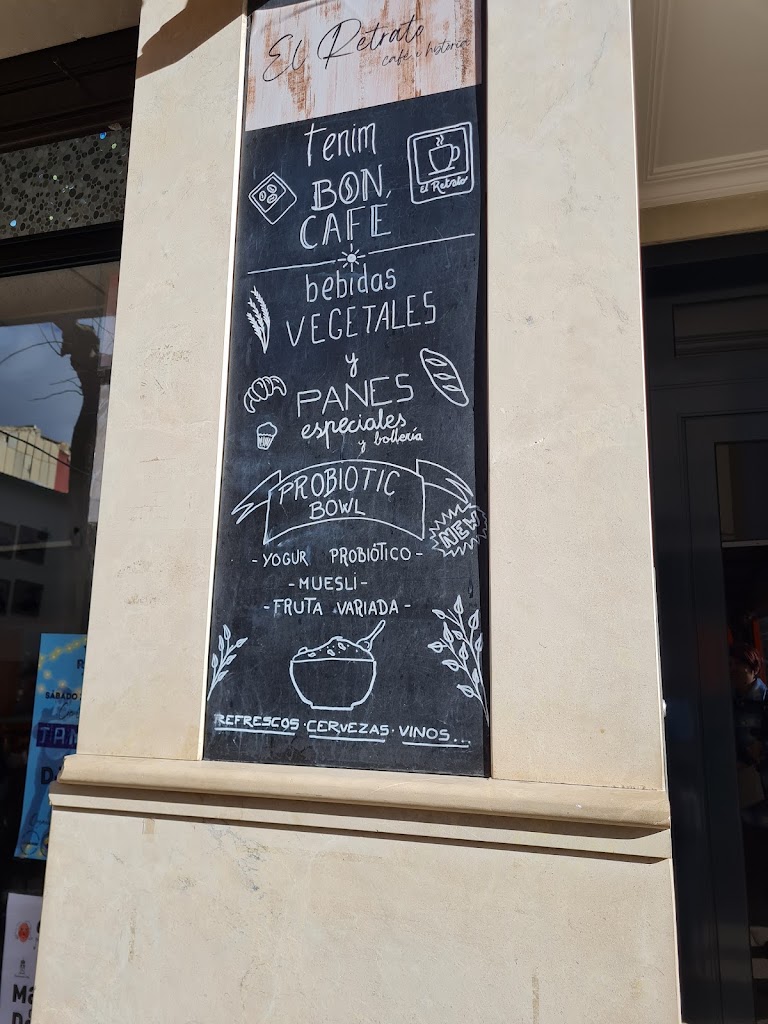 El Retrato
café e historia
tenim
BON
CAFÉ
el Retrato
bebidas
VEGETALES
y
PANES
especiales
y bollería
PROBIOTIC
BOWL
NEW
- YOGUR PROBIÓTICO -
- MUESLI -
- FRUTA VARIADA -
REFRESCOS · CERVEZAS · VINOS...
SÁBADO